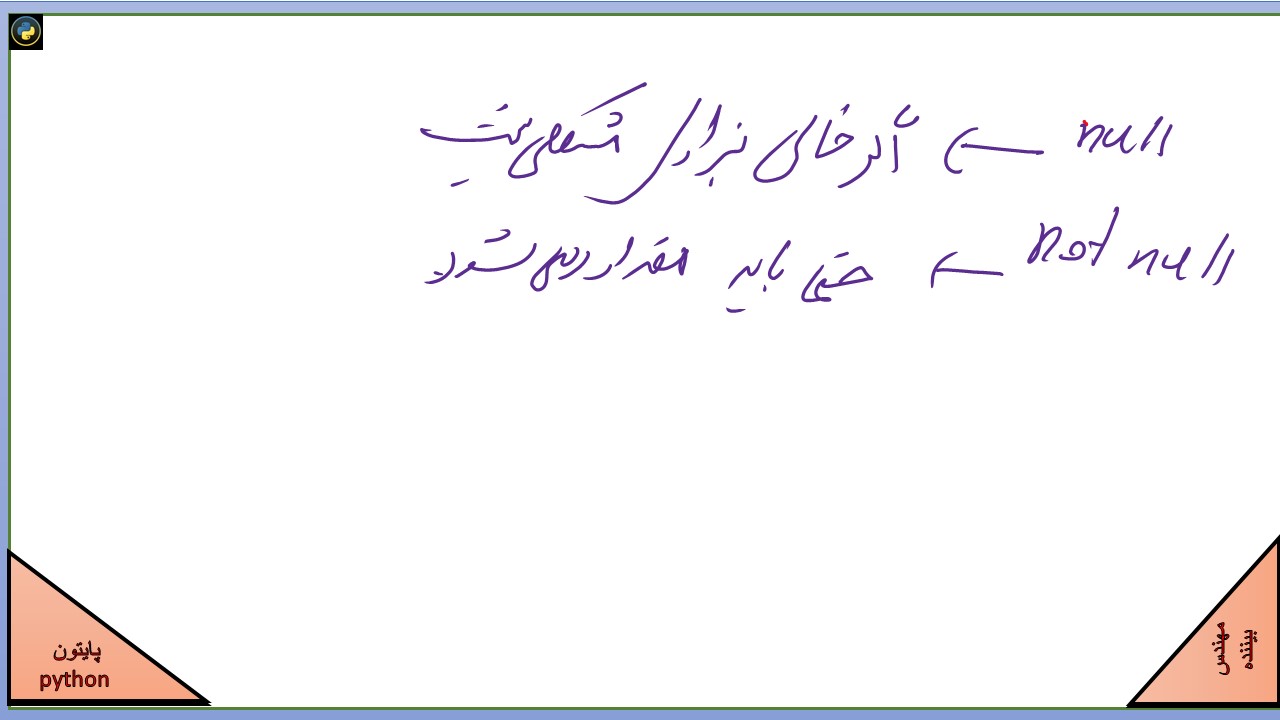 null ← اگر خالی بزاری مشکلی نیست
not null ← حتمی باید مقدار دهی شود
پایتون
python
مهندس
بیننده